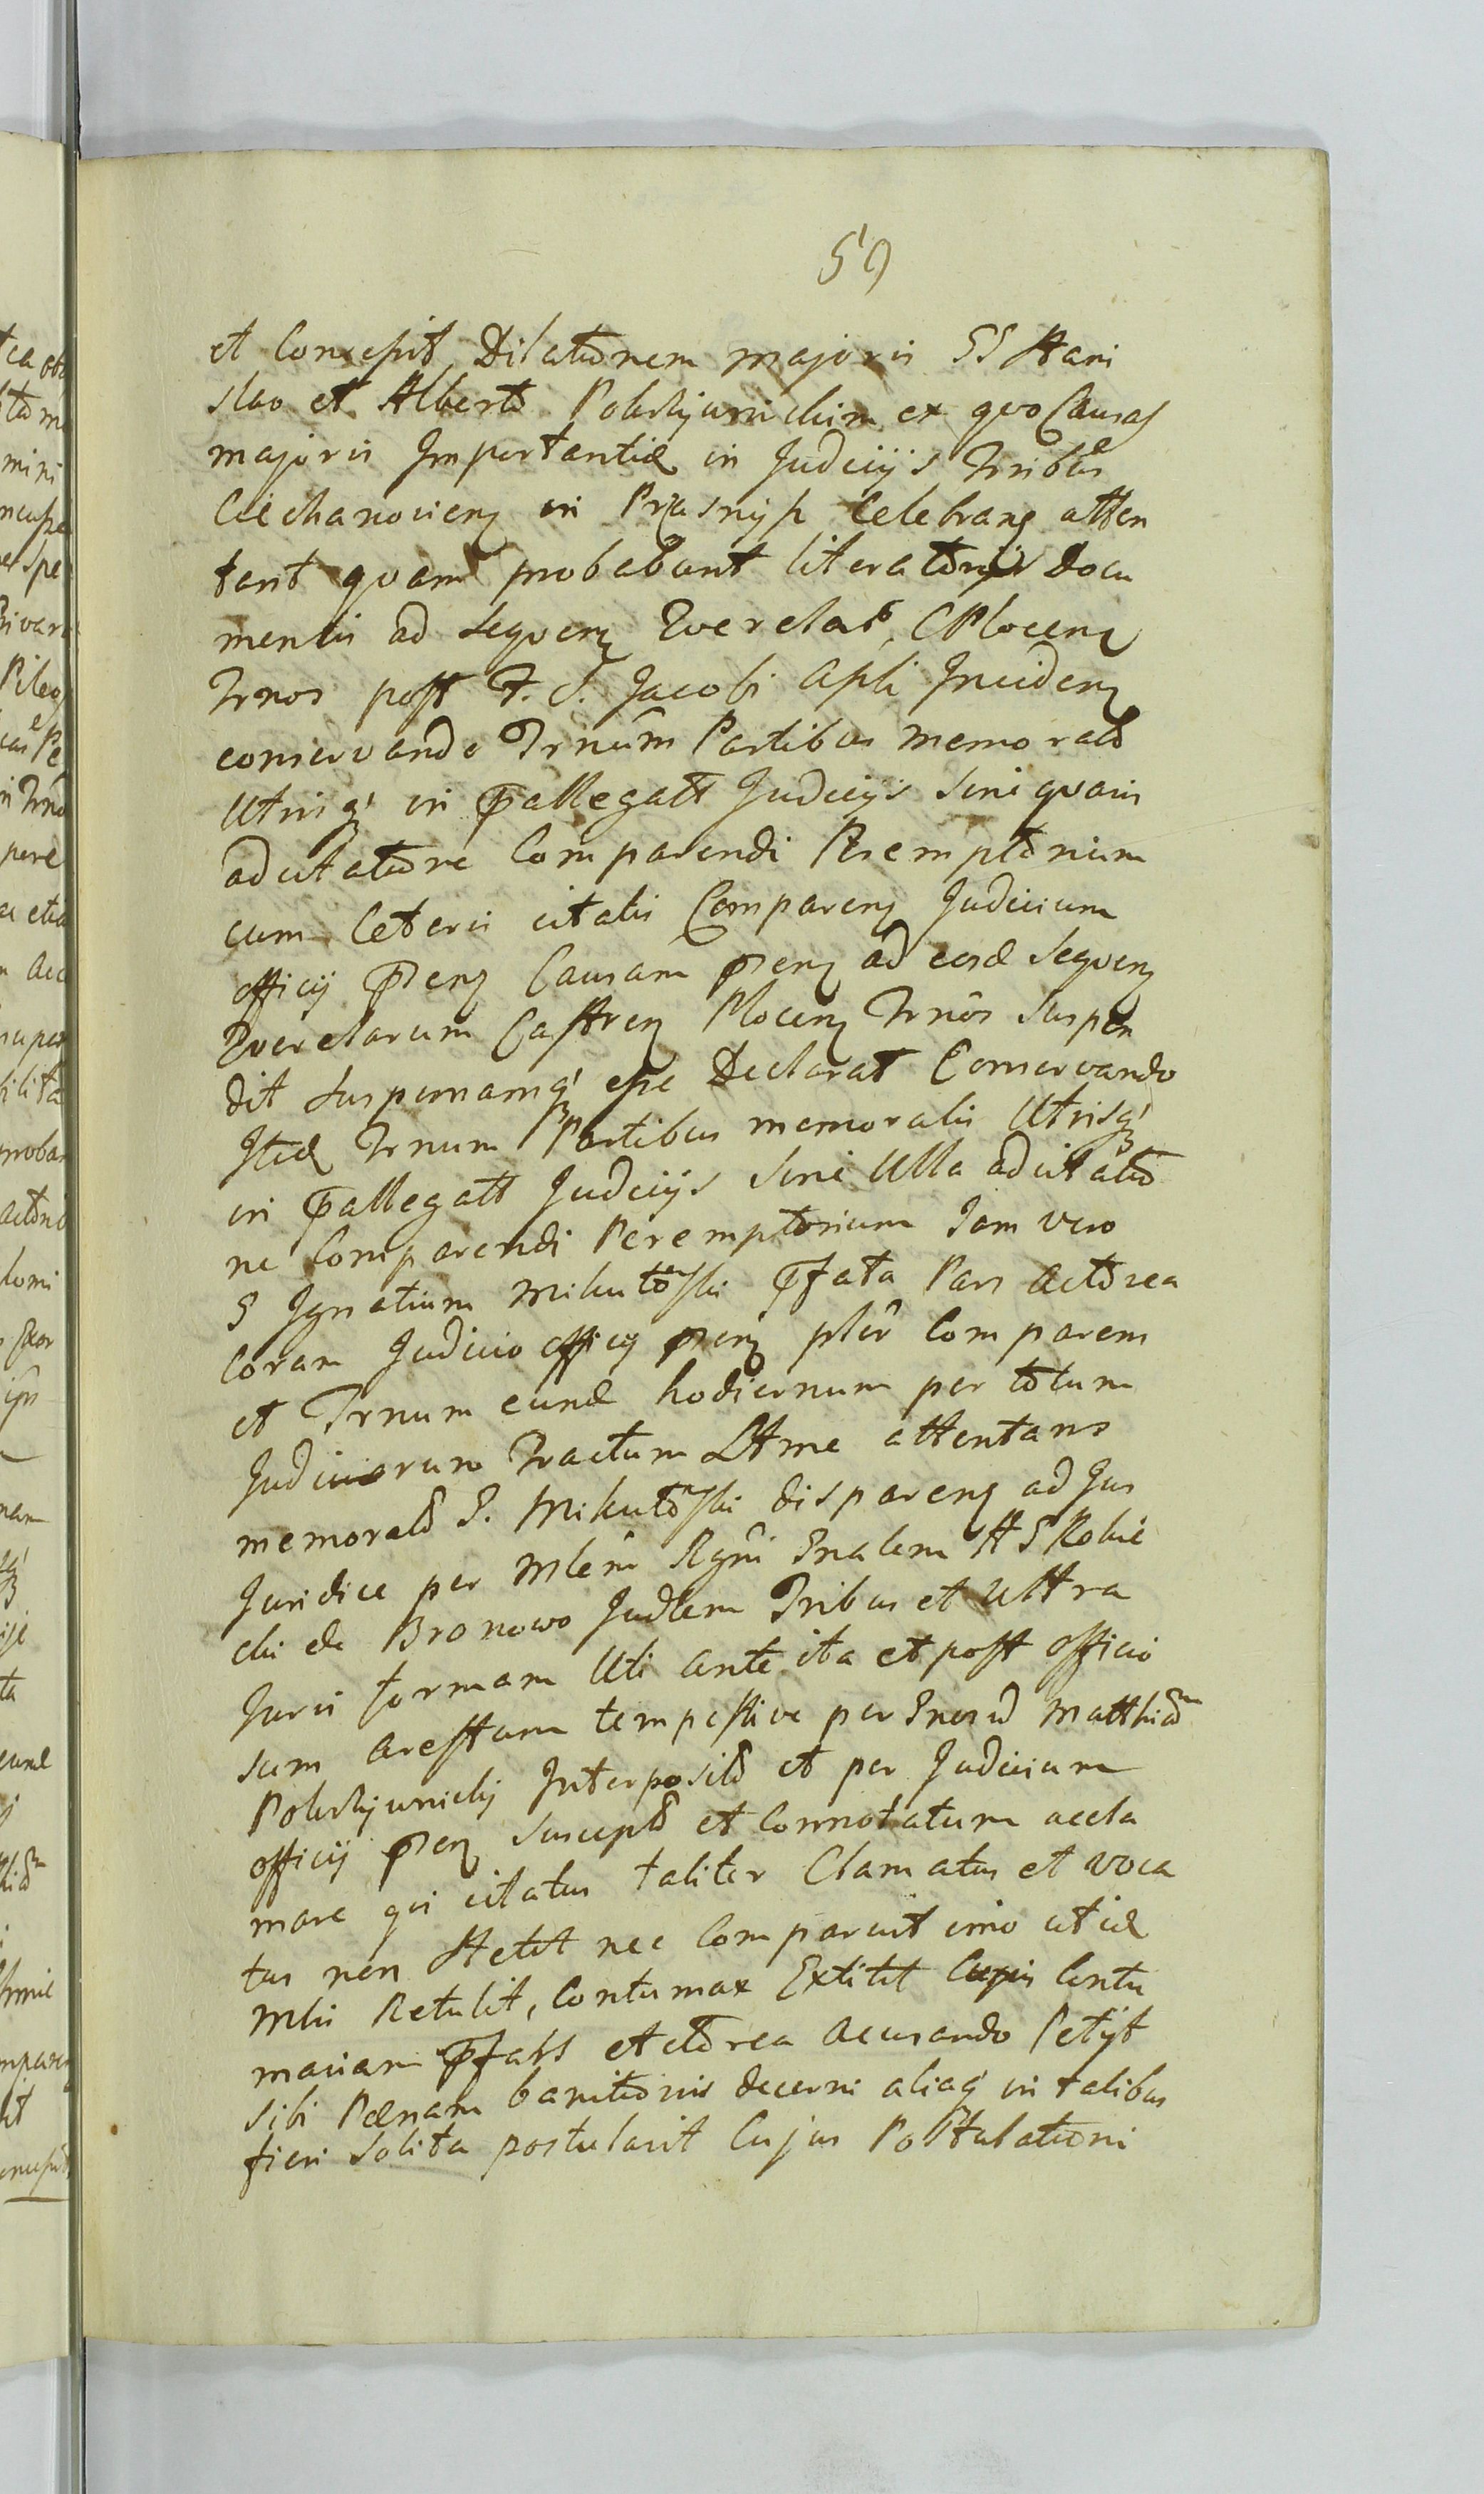 59
et Concessit Dilationem majoris GG Stani
slao et Alberto Pokrzywnickim ex quo Causas
majoris Importantiæ in Judicijs Trribus
Ciechanoviens in Præsnysz Celebrans atten
tant quam probabunt literatorijs docu
mentis ad sequens Querelar C Plocens
Trnos post F. S. Jacobi Apli Incidens
conservando Trnûm Partibus memorato
Utrisq in pallegatt Judicijs sine quavis
adcitatione Comparendi Peremptorium
cum Ceteris citatis Comparens Judicium
officij prens Causam prens ad eosd sequens
Querelarum Castren Plocens Trnôs Suspen
dit suspensamq esse Declarat Conservando
Itid Trnum Partibus memoratis Utrisq
in pallegatt Judicijs sine Ulla adcitatio
ne Comparendi Peremptorium Jam vero
G Ignatium Mikutowski pfata Pars Actorea
Coram Judicio officij prens pltr Comparens
et Trnum eund hodiernum per totum
Judiciorum Tractum Lttme attentans
memorato G. Mikutowski disparens ad Jus
Juridice per Mlêm Rgni Gnalem
chi de Bronowo Judlem Tribus et Ultra
Juris formam Uti ante ita et post officio
sum arestum tempestive per Gnosu Matthia
Pokrzywnicky Interposito et per Judicium
officij prens suscepto et Connotatum accla
mare qui citatus taliter Clamatus et voca
tus non Stetit nec Comparuit imo ut id
Mlis Retulit, Contumax Extitit Cujus Contu
maciam pfats actorea Acusando Petijt
sibi Pænam banitionis decerni aliaq in talibus
fieri solita postulavit Cujus Postulationi